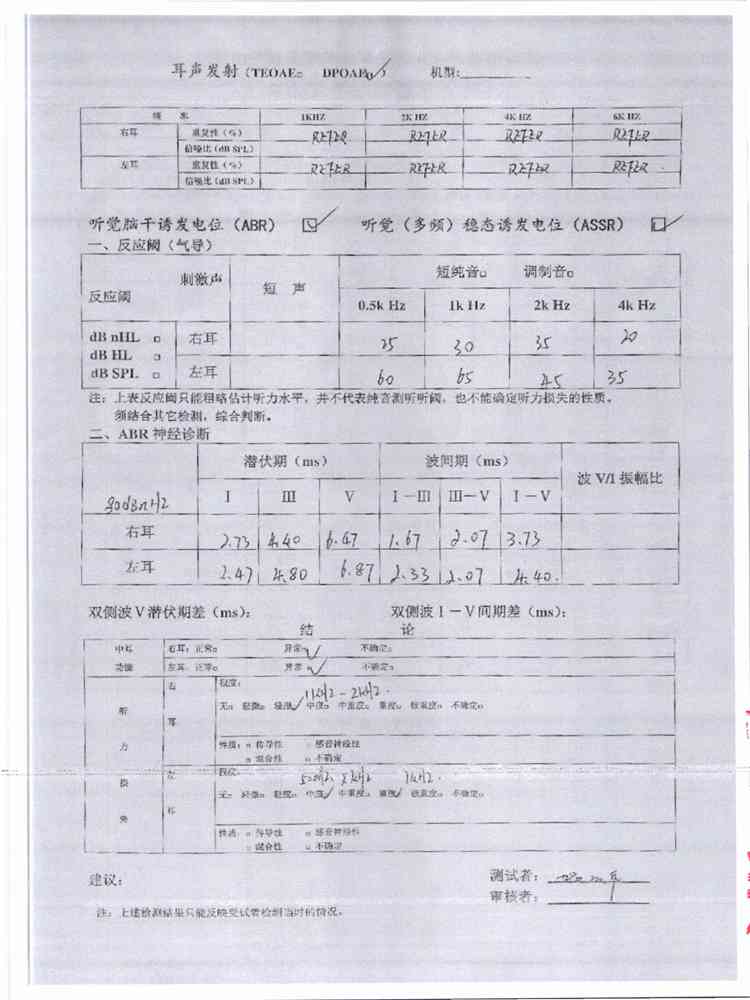 耳声发射（TEOAE□ DPOAE☑） 机型:
频 率 1KHZ 2K HZ 4K HZ 6K HZ
右耳 重复性（%）
信噪比（dB SPL）
左耳 重复性（%）
信噪比（dB SPL）
听觉脑干诱发电位（ABR） ☑ 听觉（多频）稳态诱发电位（ASSR） ☑
一、反应阈（气导）
刺激声 短 声 短纯音□ 调制音□
反应阈 0.5k Hz 1k Hz 2k Hz 4k Hz
dB nHL □ 右耳 25 30 35 20
dB HL □
dB SPL □ 左耳 60 65 45 35
注：上表反应阈只能粗略估计听力水平，并不代表纯音测听听阈，也不能确定听力损失的性质。
须结合其它检测，综合判断。
二、ABR 神经诊断
潜伏期（ms） 波间期（ms） 波 V/I 振幅比
I III V I－III III－V I－V
右耳 2.73 4.40 6.47 1.67 2.07 3.73
左耳 2.47 4.80 6.87 2.33 2.07 4.40
双侧波 V 潜伏期差（ms）： 双侧波 I－V 间期差（ms）：
结 论
中耳 右耳：正常□ 异常☑ 不确定□
功能 左耳：正常□ 异常☑ 不确定□
听力损失
右耳 程度： 1kHz - 2kHz
无□ 轻微□ 轻度☑ 中度□ 中重度□ 重度□ 极重度□ 不确定□
性质：□ 传导性 □ 感音神经性
□ 混合性 □ 不确定
左耳 程度： 500Hz 2kHz 1kHz
无□ 轻微□ 轻度□ 中度☑ 中重度□ 重度☑ 极重度□ 不确定□
性质：□ 传导性 □ 感音神经性
□ 混合性 □ 不确定
建议： 测试者：
审核者：
注：上述检测结果只能反映受试者检测当时的情况。